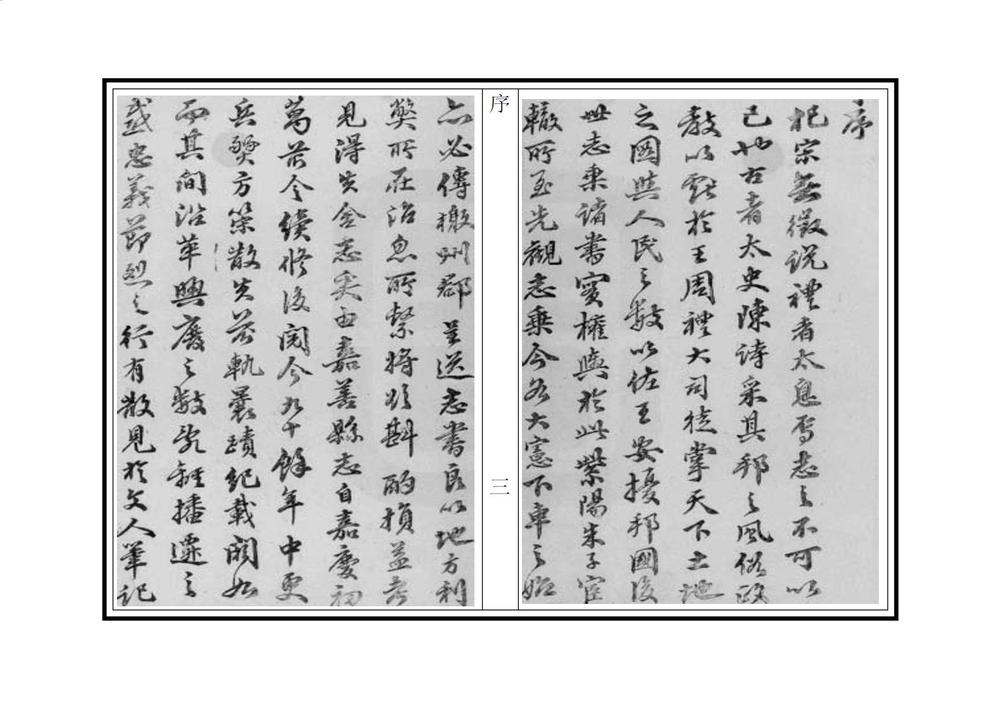 序
杞宋無徵説禮者太息焉志之不可以
已也古者太史陳詩采其邦之風俗政
教以獻於王周禮大司徒掌天下土地
之圖與人民之數以佐王安擾邦國後
世志乘諸書實權輿於此紫陽朱子宦
轍所至先觀志乘今各大憲下車之始
序
三
亦必傳檄州郡呈送志書良以地方利
弊所在治忽所繫將欲斟酌損益若
見得失舍志奚由嘉善縣志自嘉慶初
萬 令續修後閲今九十餘年中更
兵燹方策散失前軌曩蹟紀載闕如
而其間沿革興廢之數 播遷之
感忠義節烈之行有散見於文人筆記